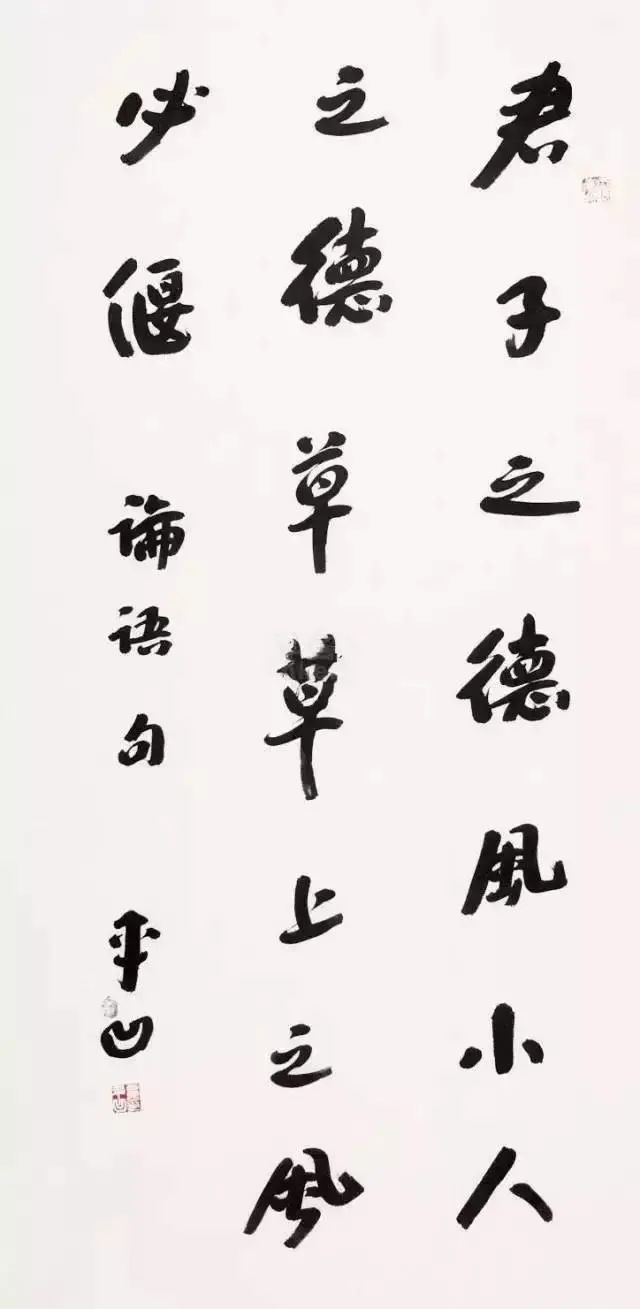 君子之德風小人
之德草草上之风
必偃 論语句 平凹